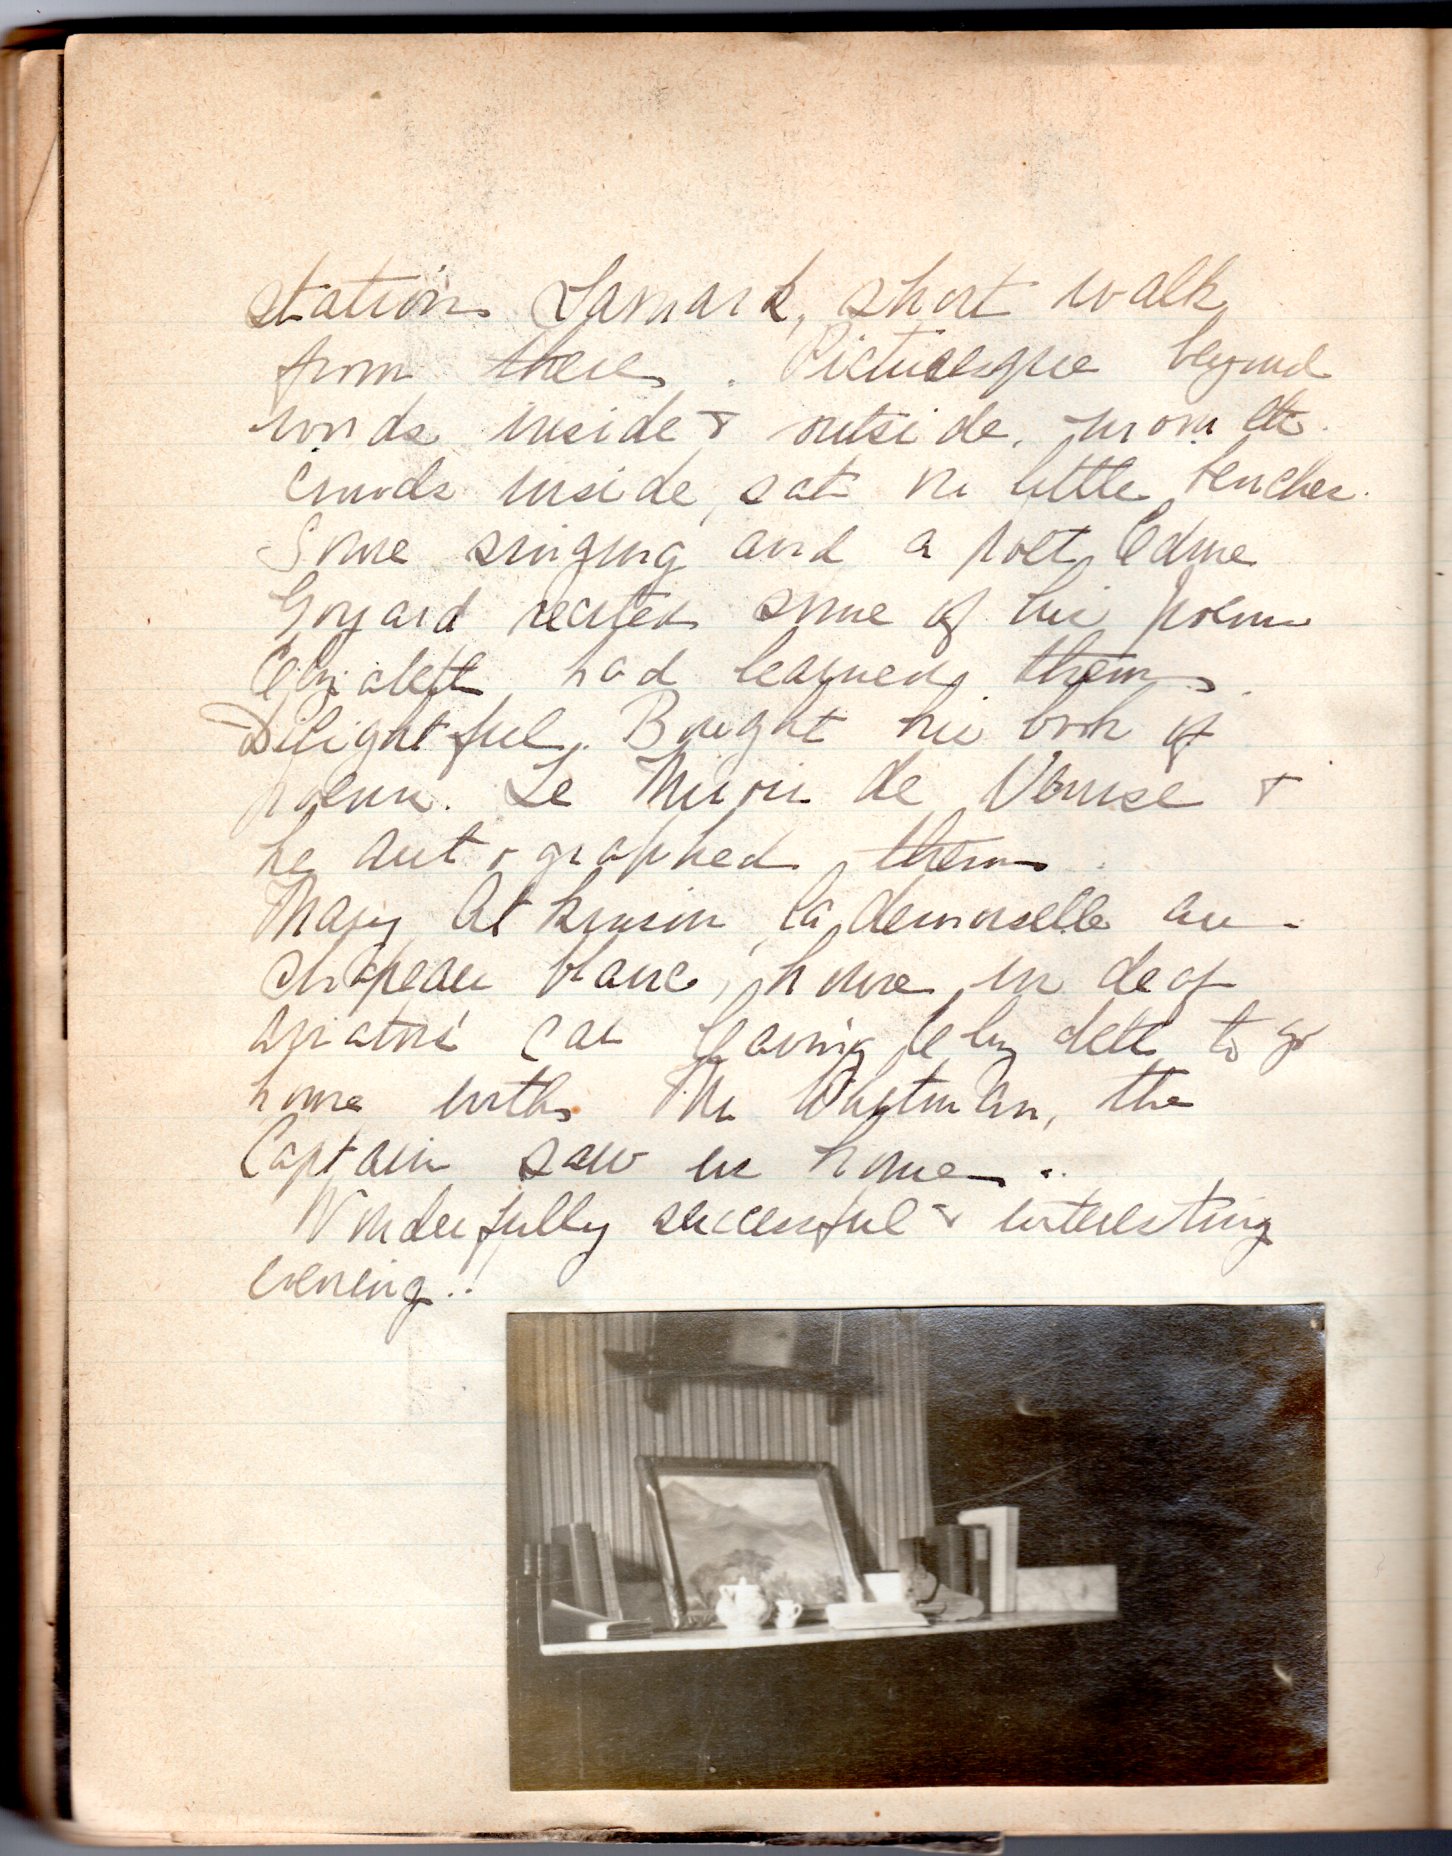 station Lamark, short walk
from there. Picturesque beyond
words inside & outside.
Crowds inside, sat on little benches.
Some singing and a poet Edme
Goyard recited some of his poems
Elizabeth had learned them.
Delightful. Bought his book of
poems. Le Miroir de Venise &
he autographed them.
Mary Atkinson, la demoiselle au
chapeau blanc, home in
aviators' car leaving to go
home with Mr Whitman, the
Captain saw us home..
Wonderfully successful & interesting
evening..